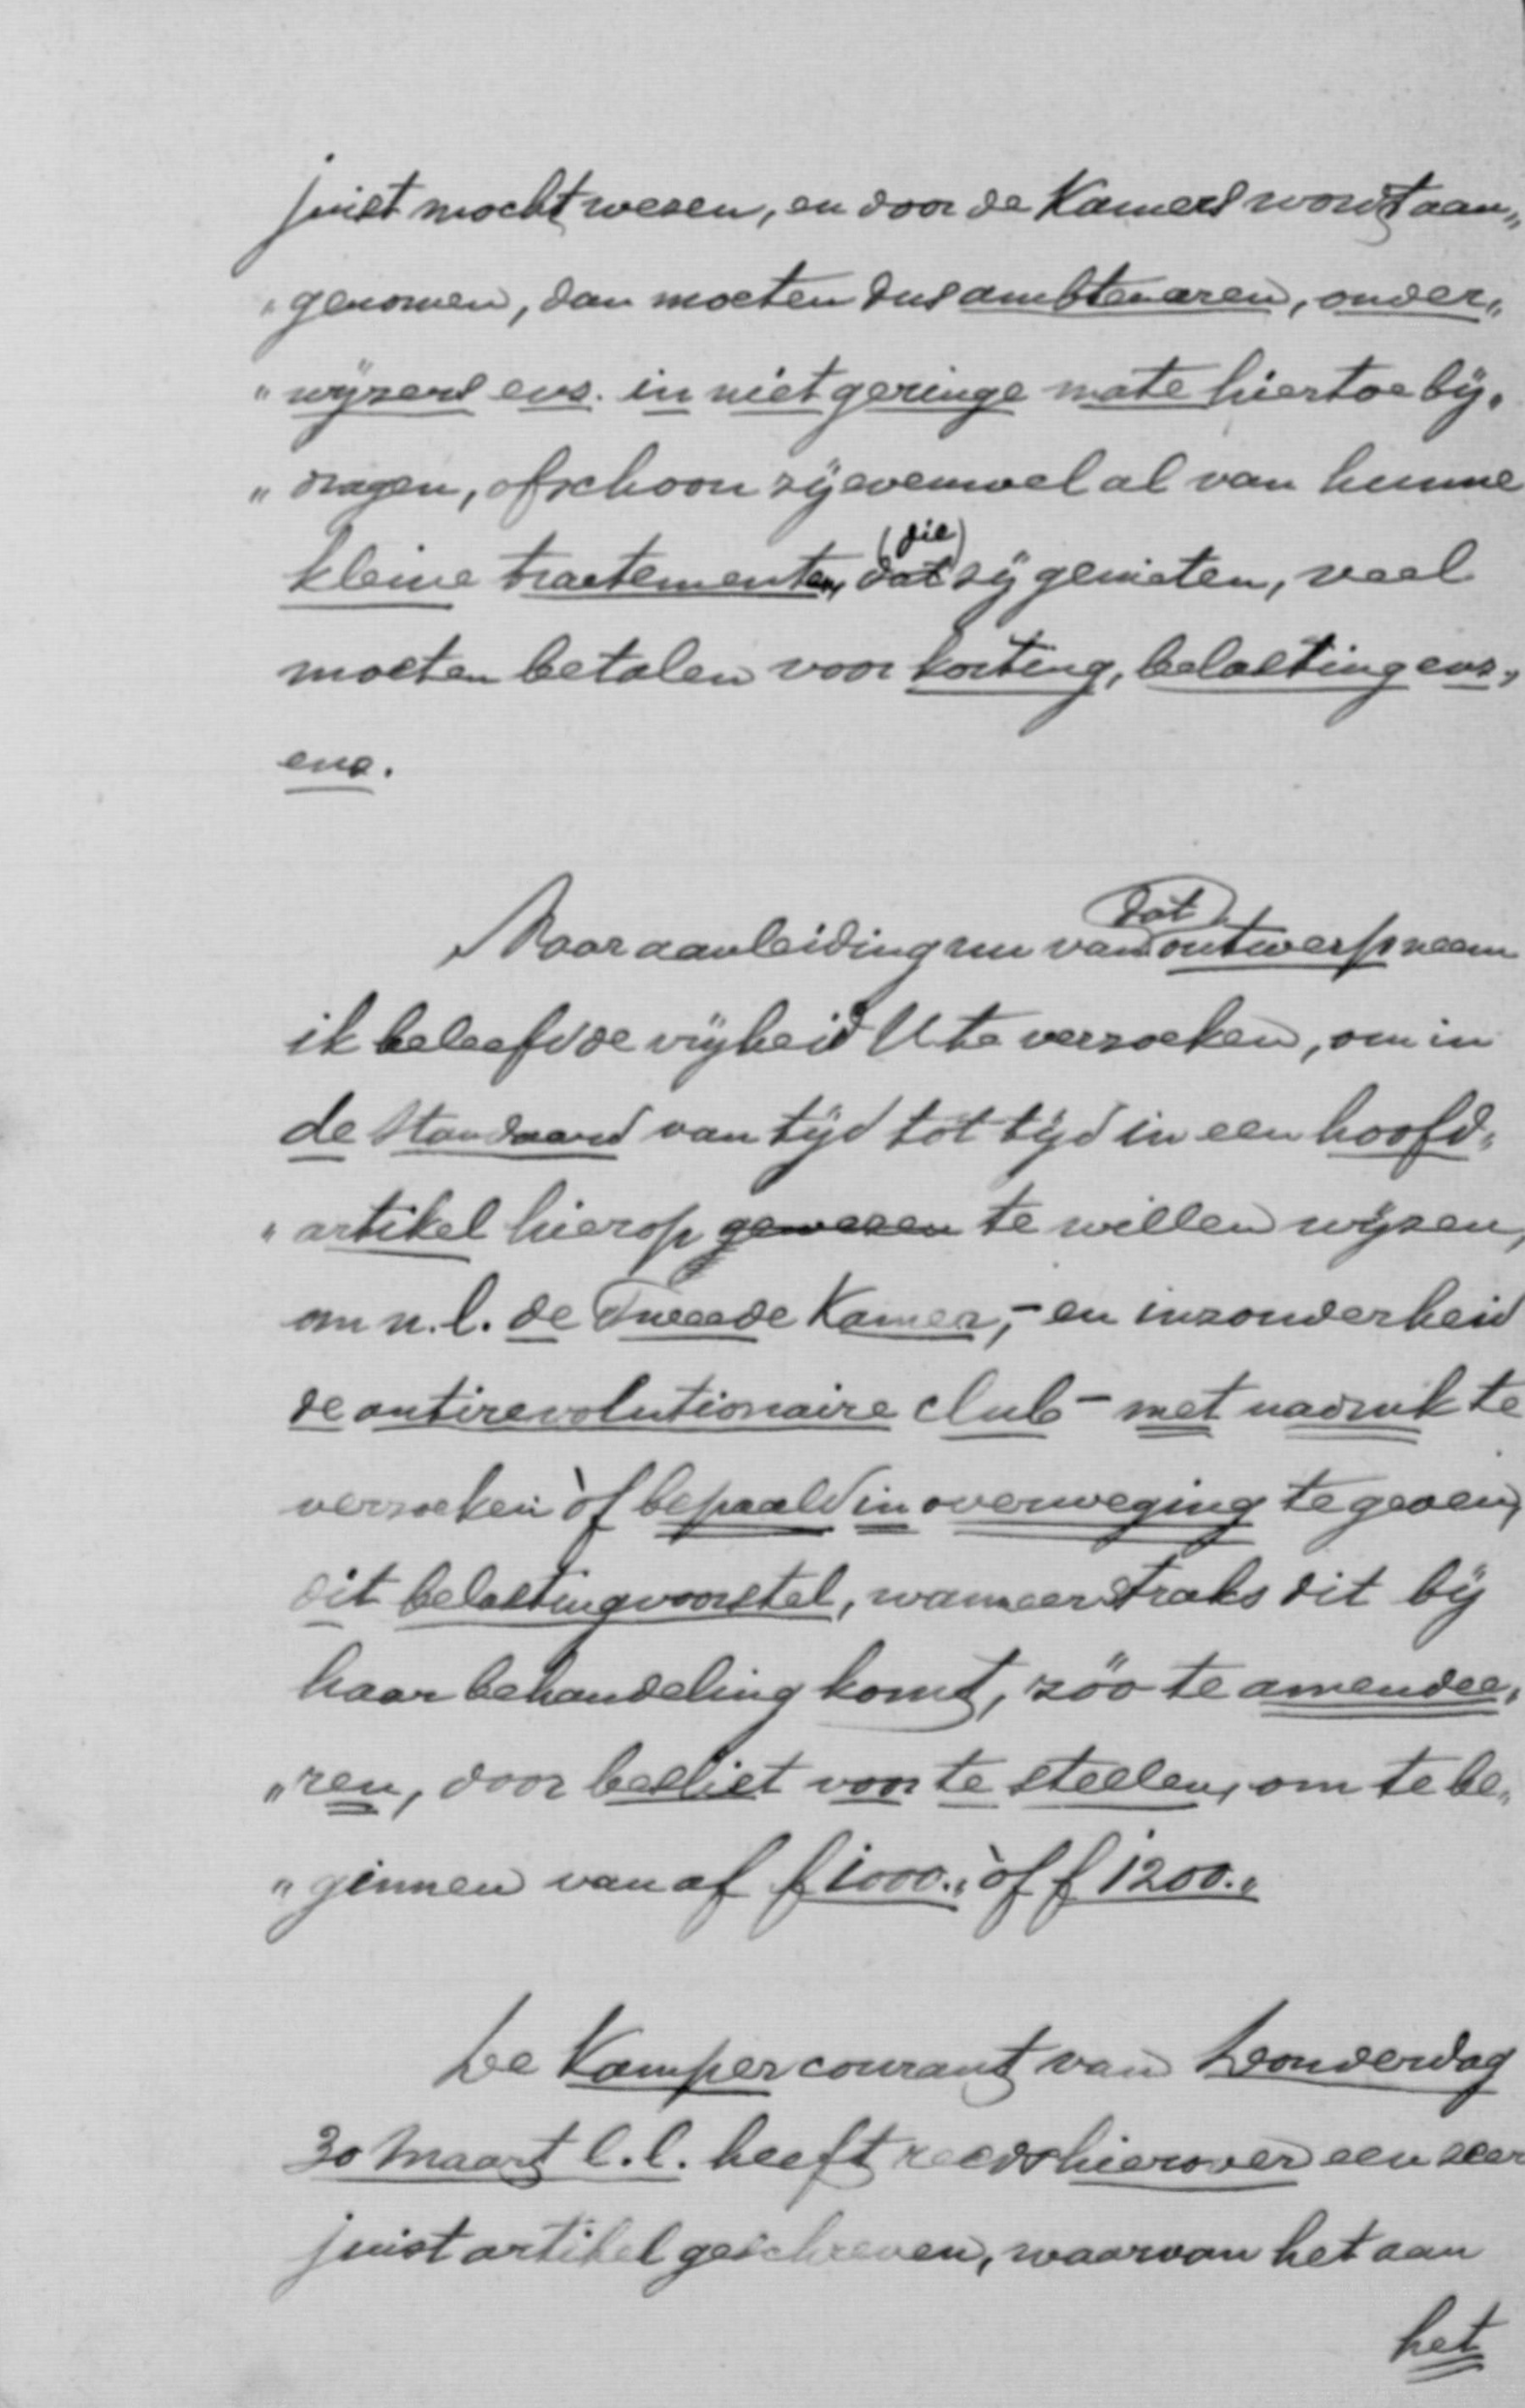 juist mocht wezen, en door de Kamers wordt aan„
„genomen, dan moeten dus ambtenaren, onder„
„wijzers enz. in niet geringe mate hiertoe bij„
„dragen, ofschoon zij evenwel al van hunne
kleine tractementen, dat (die) zij genieten, veel
moeten betalen voor korting, belasting enz.,
enz.
Naar aanleiding nu van dat ontwerp neem
ik beleefd de vrijheid U te verzoeken, om in
de Standaard van tijd tot tijd in een hoofd„
„artikel hierop gewezen te willen wijzen,
om n.l. de Tweede Kamer, – en inzonderheid
de antirevolutionaire club – met nadruk te
verzoeken òf bepaald in overweging te geven,
dit belastingvoorstel, wanneer straks dit bij
haar behandeling komt, zóó te amendee„
„ren, door beslist voor te stellen, om te be„
„ginnen van af f 1000.„ òf f 1200.„
De Kamper courant van Donderdag
30 Maart l.l. heeft reeds hierover een zeer
juist artikel geschreven, waarvan het aan
het